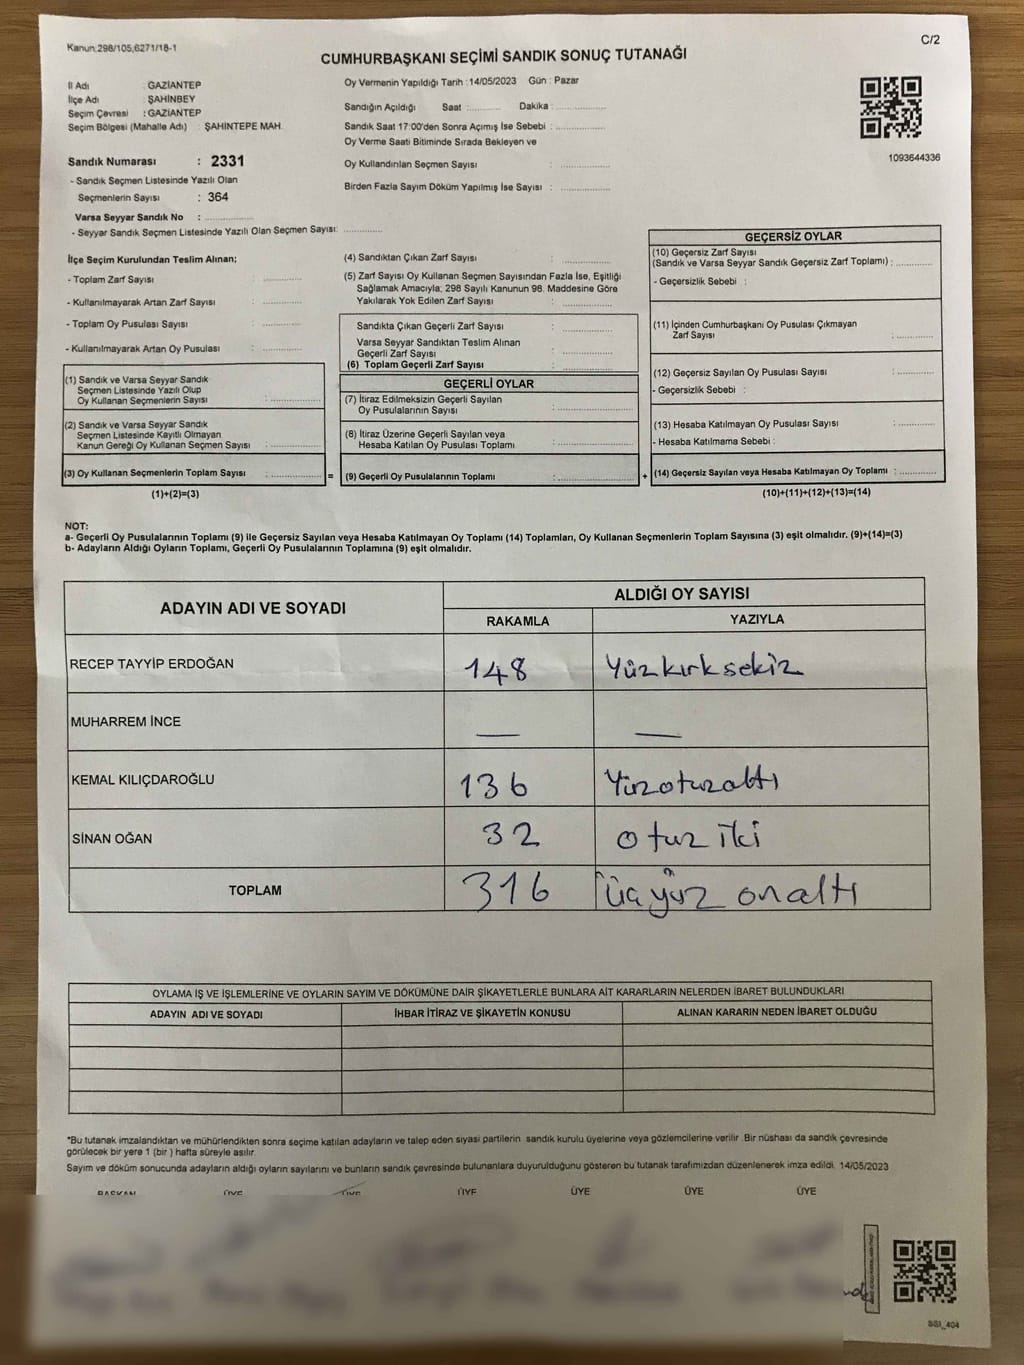 Kanun:298/105,6271/18-1
C/2
CUMHURBAŞKANI SEÇİMİ SANDIK SONUÇ TUTANAĞI
İl Adı : GAZİANTEP
İlçe Adı : ŞAHİNBEY
Seçim Çevresi : GAZİANTEP
Seçim Bölgesi (Mahalle Adı) : ŞAHİNTEPE MAH.
Sandık Numarası : 2331
- Sandık Seçmen Listesinde Yazılı Olan
Seçmenlerin Sayısı : 364
Varsa Seyyar Sandık No : ..............
- Seyyar Sandık Seçmen Listesinde Yazılı Olan Seçmen Sayısı: ............
Oy Vermenin Yapıldığı Tarih : 14/05/2023 Gün : Pazar
Sandığın Açıldığı Saat :.......... Dakika : ...............
Sandık Saat 17:00'den Sonra Açımış İse Sebebi : ...............
Oy Verme Saati Bitiminde Sırada Bekleyen ve
Oy Kullandırılan Seçmen Sayısı : ...............
Birden Fazla Sayım Döküm Yapılmış İse Sayısı : ...............
1093644336
İlçe Seçim Kurulundan Teslim Alınan;
- Toplam Zarf Sayısı : ............
- Kullanılmayarak Artan Zarf Sayısı : ............
- Toplam Oy Pusulası Sayısı : ............
- Kullanılmayarak Artan Oy Pusulası : ............
(1) Sandık ve Varsa Seyyar Sandık
Seçmen Listesinde Yazılı Olup
Oy Kullanan Seçmenlerin Sayısı : ...............
(2) Sandık ve Varsa Seyyar Sandık
Seçmen Listesinde Kayıtlı Olmayan
Kanun Gereği Oy Kullanan Seçmen Sayısı : ...............
(3) Oy Kullanan Seçmenlerin Toplam Sayısı : ...............
(1)+(2)=(3)
=
(4) Sandıktan Çıkan Zarf Sayısı : ...............
(5) Zarf Sayısı Oy Kullanan Seçmen Sayısından Fazla İse, Eşitliği
Sağlamak Amacıyla; 298 Sayılı Kanunun 98. Maddesine Göre
Yakılarak Yok Edilen Zarf Sayısı : ...............
Sandıkta Çıkan Geçerli Zarf Sayısı : ...............
Varsa Seyyar Sandıktan Teslim Alınan
Geçerli Zarf Sayısı : ...............
(6) Toplam Geçerli Zarf Sayısı : ...............
GEÇERLİ OYLAR
(7) İtiraz Edilmeksizin Geçerli Sayılan
Oy Pusulalarının Sayısı : ...............
(8) İtiraz Üzerine Geçerli Sayılan veya
Hesaba Katılan Oy Pusulası Toplamı : ...............
(9) Geçerli Oy Pusulalarının Toplamı : ...............
+
GEÇERSİZ OYLAR
(10) Geçersiz Zarf Sayısı
(Sandık ve Varsa Seyyar Sandık Geçersiz Zarf Toplamı) : ..........
- Geçersizlik Sebebi :
(11) İçinden Cumhurbaşkanı Oy Pusulası Çıkmayan
Zarf Sayısı : ..........
(12) Geçersiz Sayılan Oy Pusulası Sayısı : ..........
- Geçersizlik Sebebi :
(13) Hesaba Katılmayan Oy Pusulası Sayısı : ..........
- Hesaba Katılmama Sebebi :
(14) Geçersiz Sayılan veya Hesaba Katılmayan Oy Toplamı : ..........
(10)+(11)+(12)+(13)=(14)
NOT:
a- Geçerli Oy Pusulalarının Toplamı (9) ile Geçersiz Sayılan veya Hesaba Katılmayan Oy Toplamı (14) Toplamları, Oy Kullanan Seçmenlerin Toplam Sayısına (3) eşit olmalıdır. (9)+(14)=(3)
b- Adayların Aldığı Oyların Toplamı, Geçerli Oy Pusulalarının Toplamına (9) eşit olmalıdır.
ADAYIN ADI VE SOYADI
ALDIĞI OY SAYISI
RAKAMLA YAZIYLA
RECEP TAYYİP ERDOĞAN 148 Yüzkırksekiz
MUHARREM İNCE — —
KEMAL KILIÇDAROĞLU 136 Yüzotuzaltı
SİNAN OĞAN 32 otuz iki
TOPLAM 316 üçyüz onaltı
OYLAMA İŞ VE İŞLEMLERİNE VE OYLARIN SAYIM VE DÖKÜMÜNE DAİR ŞİKAYETLERLE BUNLARA AİT KARARLARIN NELERDEN İBARET BULUNDUKLARI
ADAYIN ADI VE SOYADI İHBAR İTİRAZ VE ŞİKAYETİN KONUSU ALINAN KARARIN NEDEN İBARET OLDUĞU
*Bu tutanak imzalandıktan ve mühürlendikten sonra seçime katılan adayların ve talep eden siyasi partilerin sandık kurulu üyelerine veya gözlemcilerine verilir. Bir nüshası da sandık çevresinde
görülecek bir yere 1 (bir ) hafta süreyle asılır.
Sayım ve döküm sonucunda adayların aldığı oyların sayılarını ve bunların sandık çevresinde bulunanlara duyurulduğunu gösteren bu tutanak tarafımızdan düzenlenerek imza edildi. 14/05/2023
BAŞKAN ÜYE ÜYE ÜYE ÜYE ÜYE ÜYE
SSI_404